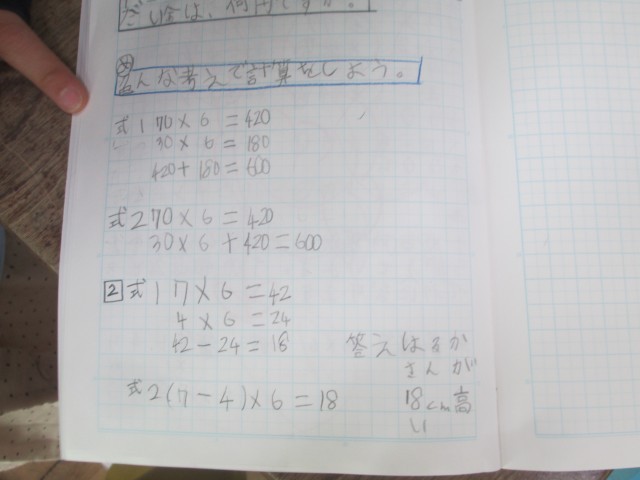 だい金は、何円ですか。
め
色んな考えで計算をしよう。
式1 70×6=420
30×6=180
420+180=600
式2 70×6=420
30×6+420=600
2 式1 7×6=42
4×6=24
42-24=18
式2 (7-4)×6=18
答えはるか
さんが
18cm高
い